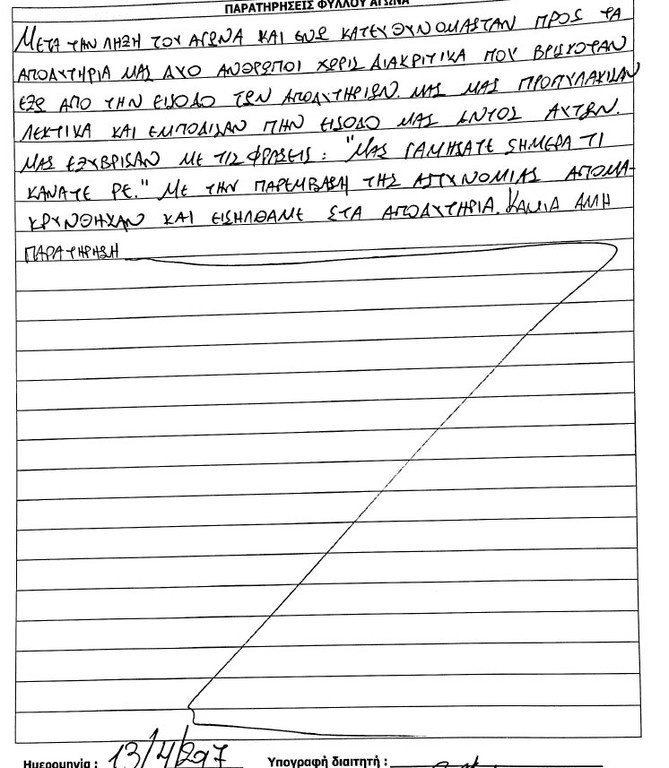 ΠΑΡΑΤΗΡΗΣΕΙΣ ΦΥΛΛΟΥ ΑΓΩΝΑ
ΜΕΤΑ ΤΗΝ ΛΗΞΗ ΤΟΥ ΑΓΩΝΑ ΚΑΙ ΕΝΩ ΚΑΤΕΥΘΥΝΟΜΑΣΤΑΝ ΠΡΟΣ ΤΑ
ΑΠΟΔΥΤΗΡΙΑ ΜΑΣ ΔΥΟ ΑΝΘΡΩΠΟΙ ΧΩΡΙΣ ΔΙΑΚΡΙΤΙΚΑ ΠΟΥ ΒΡΙΣΚΟΤΑΝ
ΕΞΩ ΑΠΟ ΤΗΝ ΕΙΣΟΔΟ ΤΩΝ ΑΠΟΔΥΤΗΡΙΩΝ. ΜΑΣ ΜΑΣ ΠΡΟΠΥΛΑΚΙΣΑΝ
ΛΕΚΤΙΚΑ ΚΑΙ ΕΜΠΟΔΙΣΑΝ ΤΗΝ ΕΙΣΟΔΟ ΜΑΣ ΕΝΤΟΣ ΑΥΤΩΝ.
ΜΑΣ ΕΞΥΒΡΙΣΑΝ ΜΕ ΤΙΣ ΦΡΑΣΕΙΣ : "ΜΑΣ ΓΑΜΗΣΑΤΕ ΣΗΜΕΡΑ ΤΙ
ΚΑΝΑΤΕ ΡΕ." ΜΕ ΤΗΝ ΠΑΡΕΜΒΑΣΗ ΤΗΣ ΑΣΤΥΝΟΜΙΑΣ ΑΠΟΜΑ-
ΚΡΥΝΘΗΚΑΝ ΚΑΙ ΕΙΣΗΛΘΑΜΕ ΣΤΑ ΑΠΟΔΥΤΗΡΙΑ. ΚΑΜΙΑ ΑΛΛΗ
ΠΑΡΑΤΗΡΗΣΗ
Ημερομηνία : 13/4/2017 Υπογραφή διαιτητή :